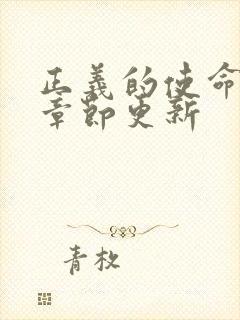 正義的使命
章節更新
青枚